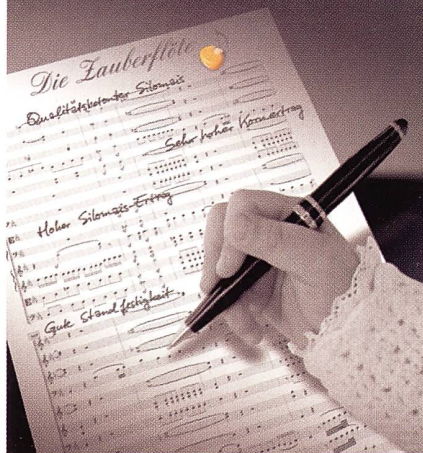 Die Zauberflöte
Qualitätsbetonter Silomais
Sehr hoher Kornertrag
Hoher Silomais-Ertrag
Gute Standfestigkeit